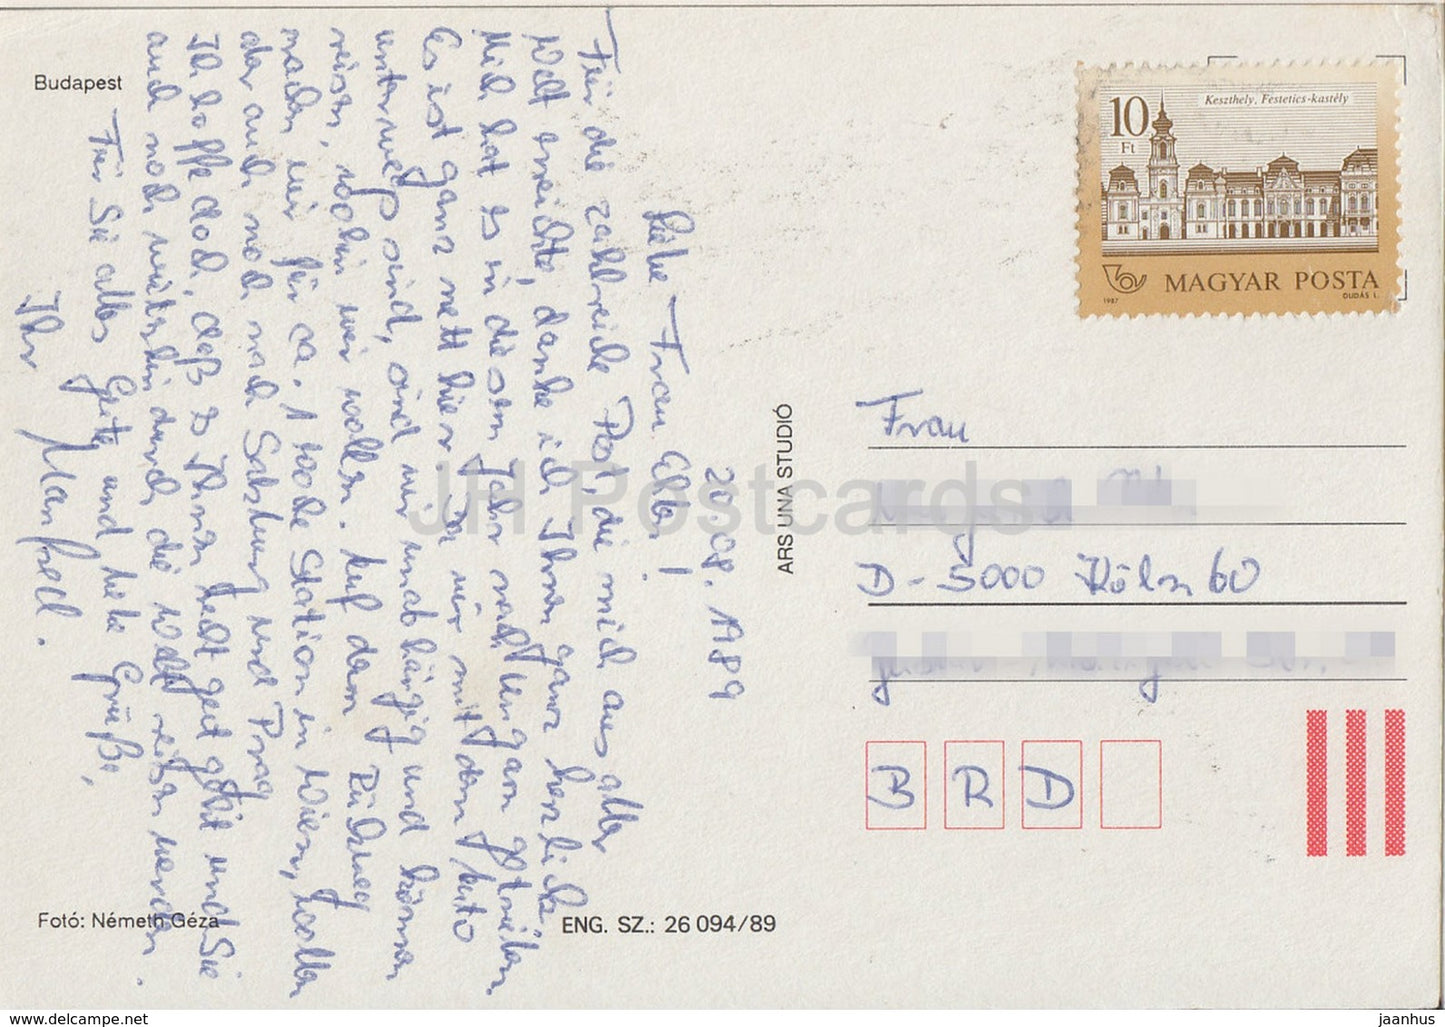 Budapest
20.08.1989
Liebe Frau Elbe!
Für die zahlreiche Post, die mich aus aller
Welt erreichte, danke ich Ihnen ganz herzlich.
Mich hat es in diesem Jahr nach Ungarn getrieben.
Es ist ganz nett hier. Da wir mit dem Auto
unterwegs sind, sind wir unabhängig und können
reisen, wohin wir wollen. Auf dem Rückweg
machen wir für ca. 1 Woche Station in Wien, wollen
aber auch noch nach Salzburg und Prag
Ich hoffe doch, daß es Ihnen recht gut geht und Sie
auch noch weiterhin durch die Welt reisen werden.
Für Sie alles Gute und liebe Grüße,
Ihr
Manfred.
Fotó: Németh Géza
ENG. SZ.: 26 094/89
ARS UNA STUDIÓ
JH Postcards
10
Ft
Keszthely, Festetics-kastély
1987
MAGYAR POSTA
DUDÁS L.
Frau
D-5000 Köln 60
B R D
www.delcampe.net
jaanhus